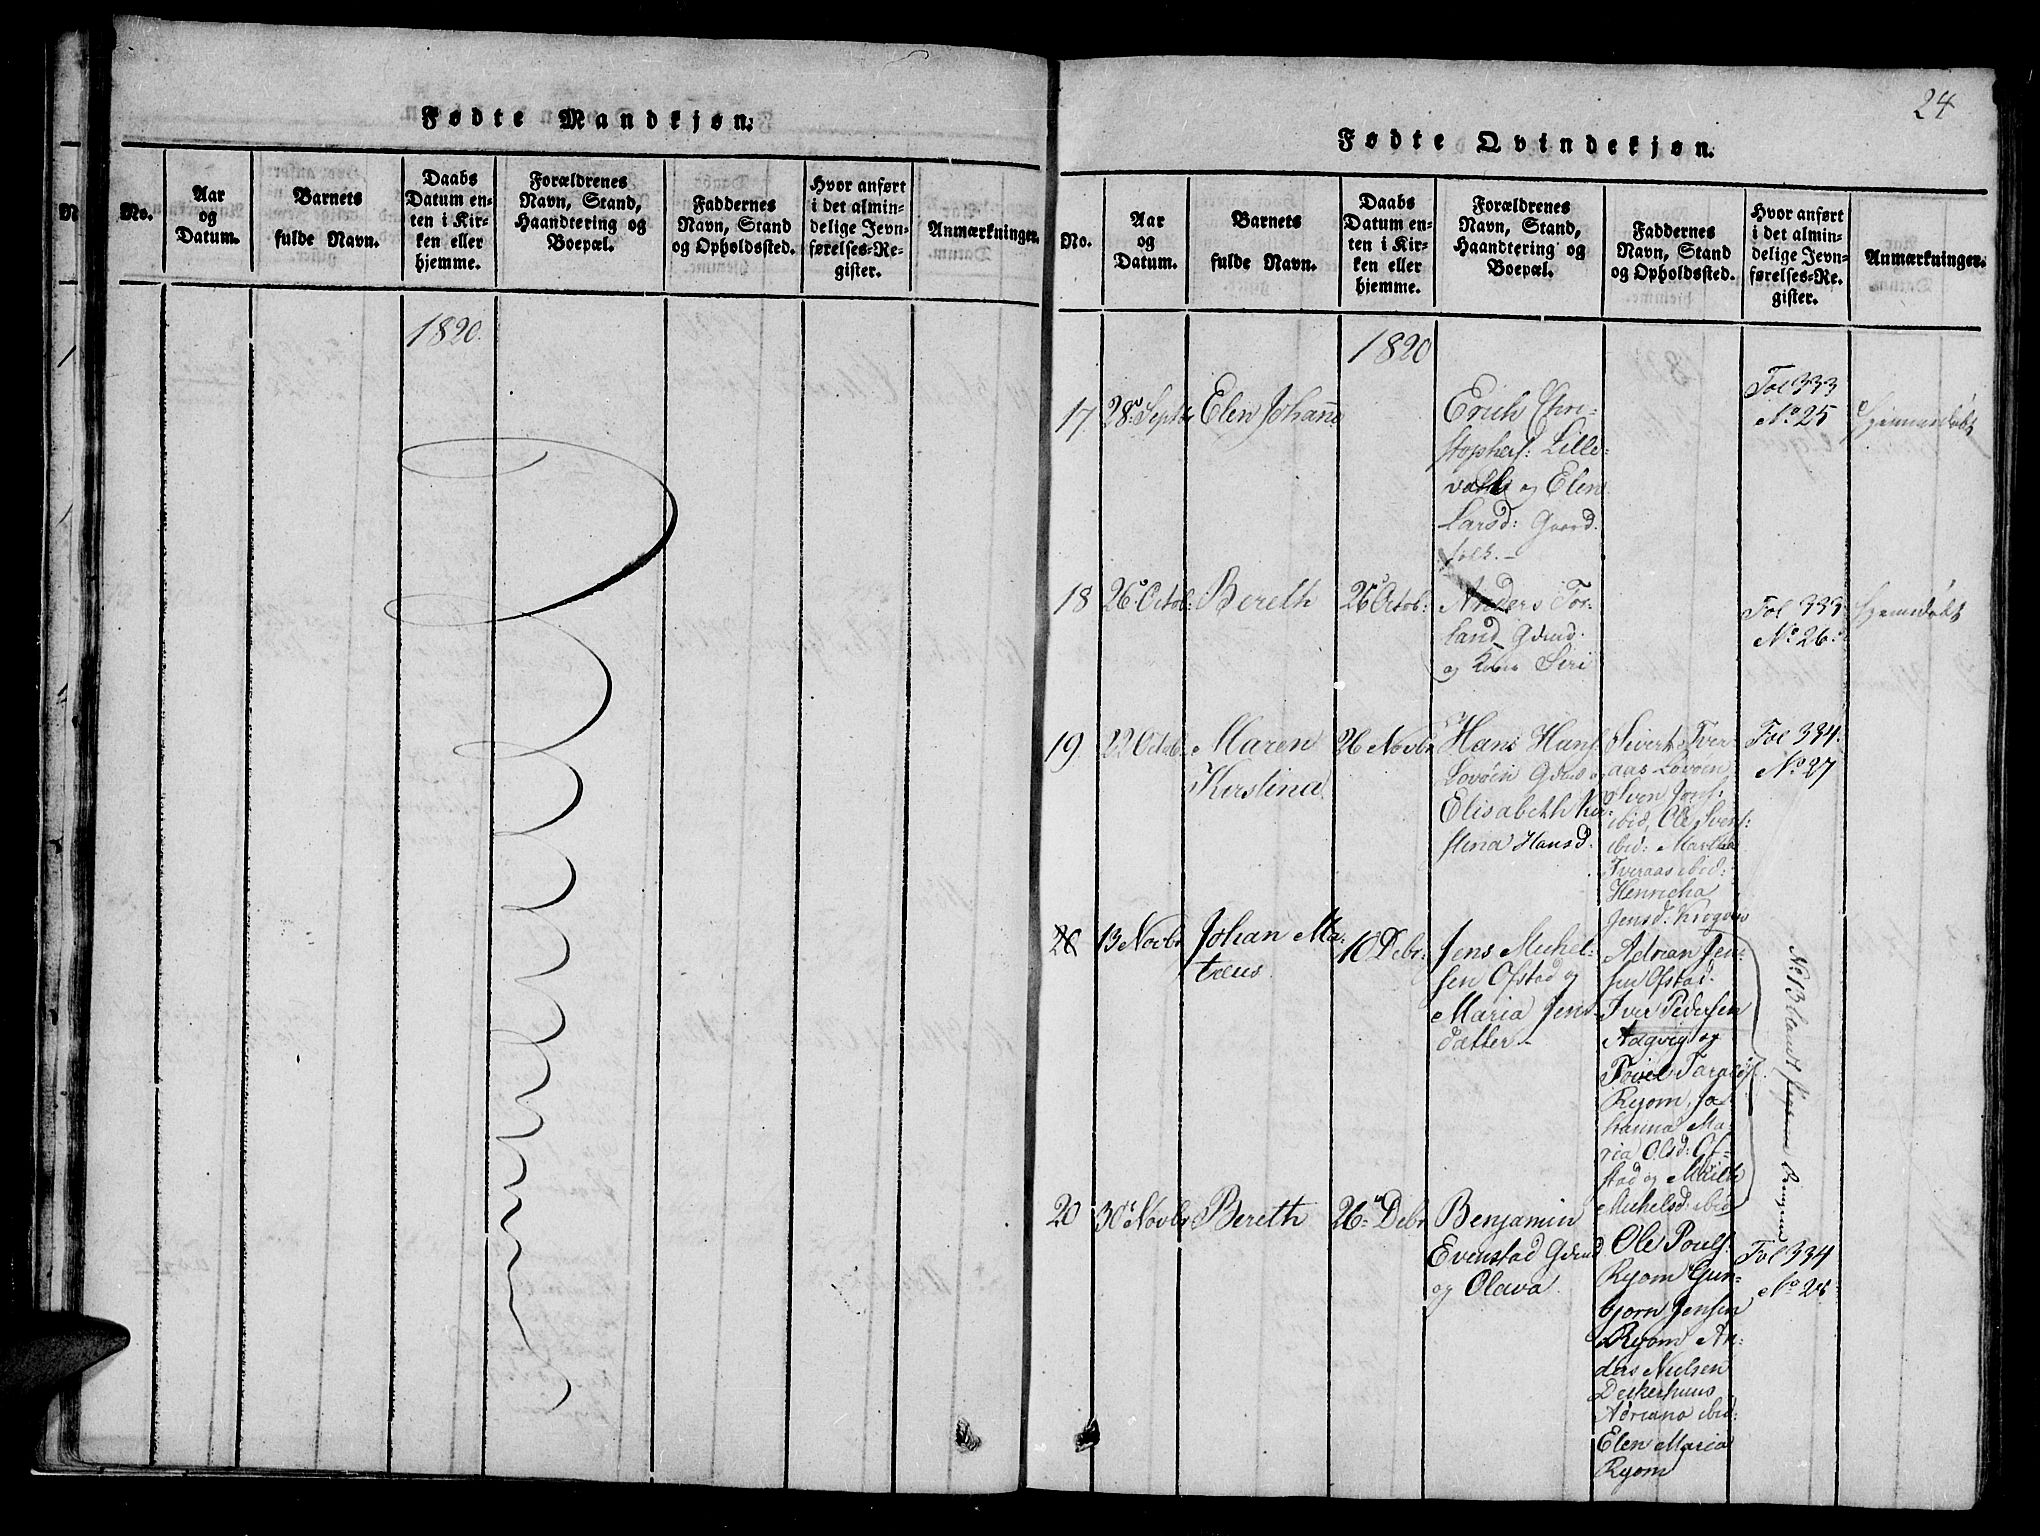 Fødte Mandkjøn.
No.
Aar
og
Datum.
Barnets
fulde Navn.
Daabs
Datum en-
ten i Kir-
ken eller
hjemme.
Forældrenes
Navn, Stand,
Haandtering og
Boepæl.
Faddernes
Navn, Stand
og Opholdssted.
Hvor anført
i det almin-
delige Jevn-
førelses-Re-
gister.
Anmærkninger.
1820.
24
Fødte Qvindekjøn.
No.
Aar
og
Datum.
Barnets
fulde Navn.
Daabs
Datum en-
ten i Kir-
ken eller
hjemme.
Forældrenes
Navn, Stand,
Haandtering og
Boepæl.
Faddernes
Navn, Stand
og Opholdssted.
Hvor anført
i det almin-
delige Jevn-
førelses-Re-
gister.
Anmærkninger.
1820
17
28 Septbr
Elen Johanne
Erich Chri-
stophers: Lille-
vold og Elen
Larsd: Gaard
folk.-
Fol 333
No 25
Hjemmedøbt
18
26 Octob:
Bereth
26 Octob:
Anders Tor-
land Gdmd:
og Kone Siri
Fol 333
No 26
Hjemedøbt
19
22 Octob:
Maren
Kirstina
26 Novbr
Hans Hans:
Lovöen Gdmd og
Elisabeth Kir-
stina Hansd.
Sivert Tver-
aas Lovöen
Sven Jons:
ibid, Ole Ivers:
ibid: Martha
Tveraas ibid:
Henricha
Jensd: Krognes
Fol 334
No 27
20
13 Novbr
Johan Ma-
tæus
10 Debr:
Jens Michel-
sen Ofstad og
Maria Jens-
datter -
Adrian Jen-
sen Ofstad
Iver Pedersen
Aagvig og
Tarald:
Ryom, Jo
hanna Ma
ria Olsd: Of-
stad og Marith
Michelsd: ibid
No 13 blandt
20
30 Novbr
Bereth
26 Debr
Benjamin
Evenstad Gdmd
og Olava.
Ole Pouls:
Ryom Gun-
bjorn Jensen
Ryom An-
ders Nielsen
Deckerhuus
Adriana ibid:
Elen Maria
Ryom
Fol 334
No 28